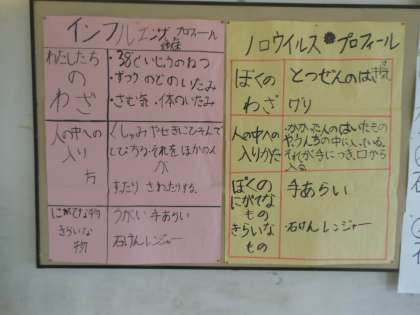 インフルエンザ プロフィール
わたしたち
の
わざ
・38どいじょうのねつ
・ずつう のどのいたみ
・さむ気、体のいたみ
人の中への
入り
方
くしゃみ やせきにひそんで
とびちる。それをほかの人
が
すったり さわたりする。
にがてな物
きらいな
物
うがい 手あらい
石けんレンジャー
ノロウイルス プロフィール
ぼくの
わざ
とつぜんのはき気
ゲリ
人の中への
入りかた
・かかった人のはいたもの
やうんちの中に入っている。
それが手につき、口から
入る
ぼくの
にがてな
もの
きらいな
もの
手あらい
石けんレンジャー